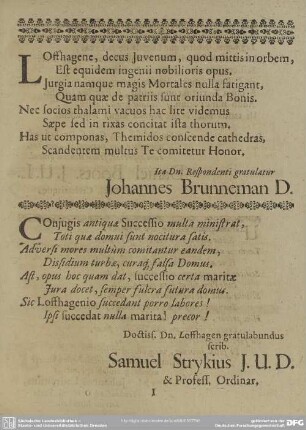 LOffhagene, decus Juvenum, quod mittis in orbem,
Est equidem ingenii nobilioris opus.
Jurgia namque magis Mortales nulla fatigant,
Quam quæ de patriis sunt oriunda Bonis.
Nec socios thalami vacuos hac lite videmus
Sæpe sed in rixas concitat ista thorum,
Has ut componas, Themidos conscende cathedras,
Scandentem multus Te comitetur Honor.
Ita Dn. Respondenti gratulatur
Johannes Brunneman D.
COnjugis antiquæ Successio multa ministrat,
Toti quæ domui sunt nocitura satis.
Adversi mores multùm comitantur eandem,
Dissidium turbæ, curaq; falsa Domus.
Ast, opus hoc quam dat, successio certa maritæ
Jura docet, semper fulcra futura domus.
Sic Loffhagenio succedant porro labores!
Ipsi succedat nulla marita! precor!
Doctiss. Dn. Loffhagen gratulabundus
scrib.
Samuel Strykius J. U. D.
& Profess. Ordinar.
I